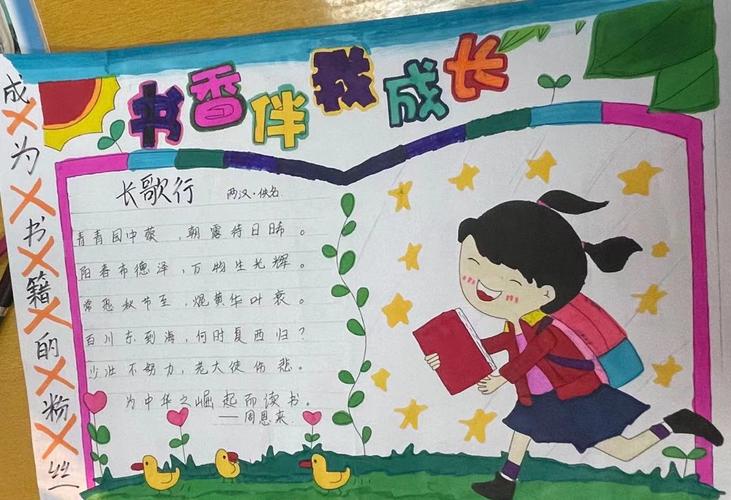 书香伴我成长
成为书籍的粉丝
长歌行 两汉·佚名
青青园中葵，朝露待日晞。
阳春布德泽，万物生光辉。
常恐秋节至，焜黄华叶衰。
百川东到海，何时复西归？
少壮不努力，老大徒伤悲。
为中华之崛起而读书。
——周恩来